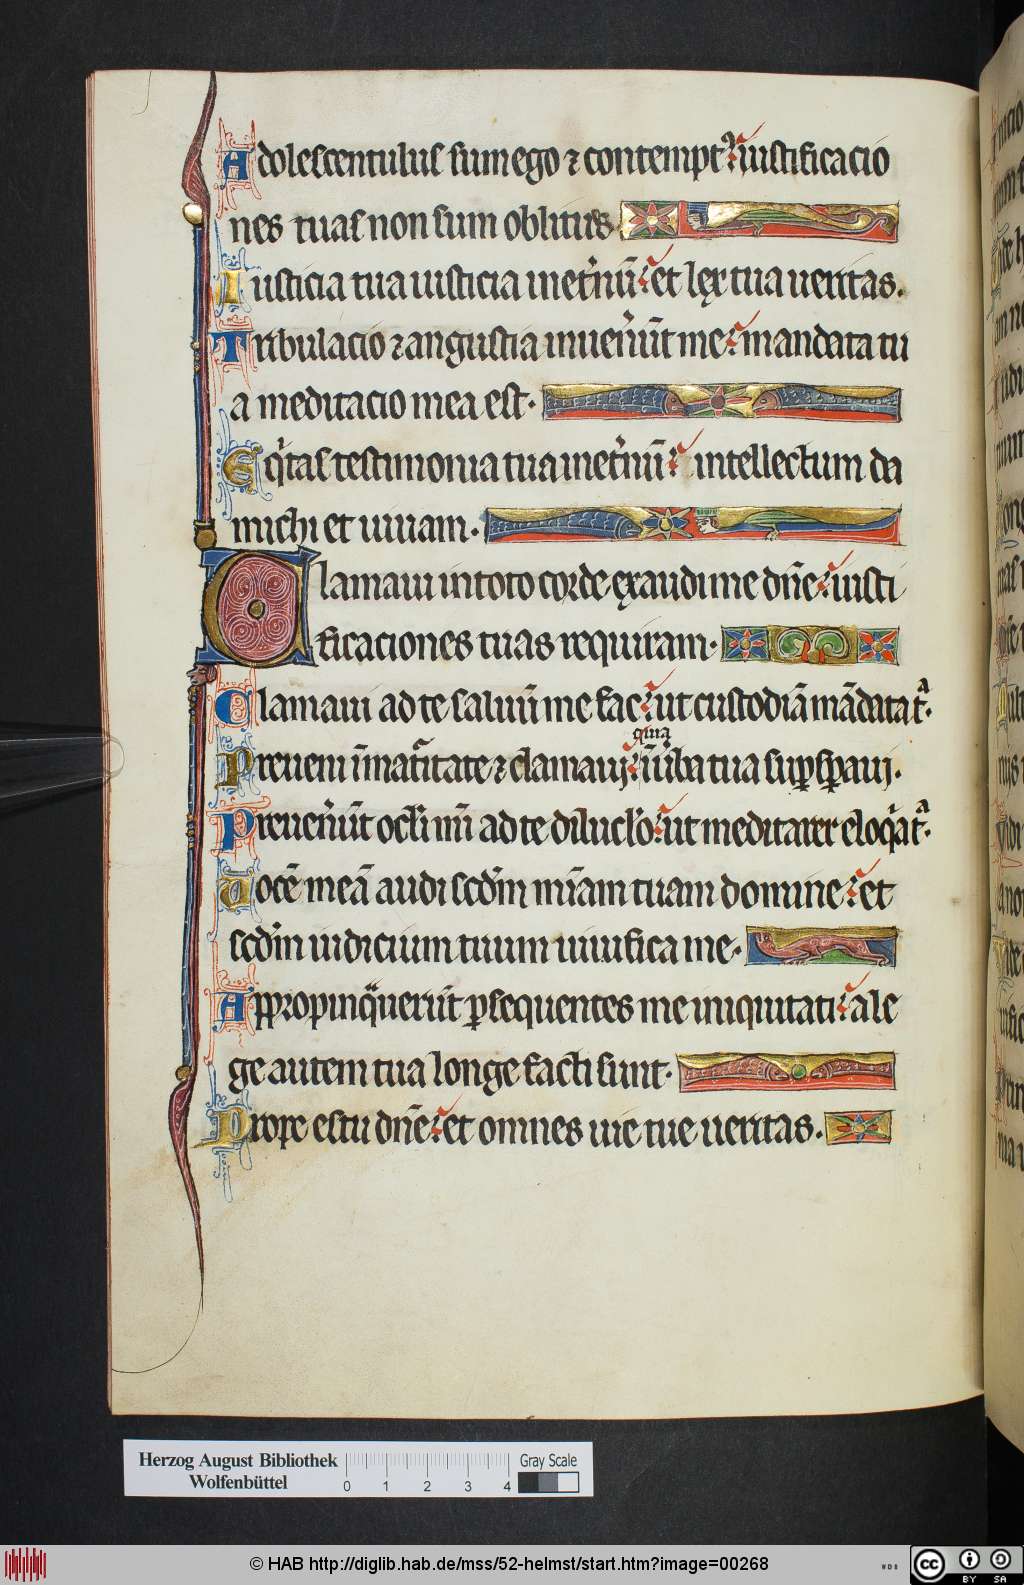 Adolescentulus sum ego ⁊ contemptꝰ iustificacio
nes tuas non sum oblitus
Iusticia tua iusticia inet̾nū et lex tua ueritas.
Tribulacio ⁊ angustia inuen̾ūt me mandata tu
a meditacio mea est.
Eq̾tas testimonia tua inet̾nū intellectum da
michi et uiuam.
Clamaui in toto corde exaudi me dn̄e iusti
ficaciones tuas requiram.
Clamaui ad te saluū me fac ut custodiā mādata tᵃ.
quia
Preueni īmat̾itate ⁊ clamaui ī ūba tua suꝑsꝑaui.
Preuen̾ūt ocl̄i mī ad te diluclo̅ ut meditarer eloq̾a tᵃ.
Uocē meā audi scdm̄ mīam tuam domine et
scdm̄ iudicium tuum uiuifica me.
Appropinq̾uerūt ꝑsequentes me iniquitati a le
ge autem tua longe facti sunt.
Prope es tu dn̄e et omnes uie tue ueritas.
Herzog August Bibliothek
Wolfenbüttel
0 1 2 3 4
Gray Scale
© HAB http://diglib.hab.de/mss/52-helmst/start.htm?image=00268
WDB
cc BY SA